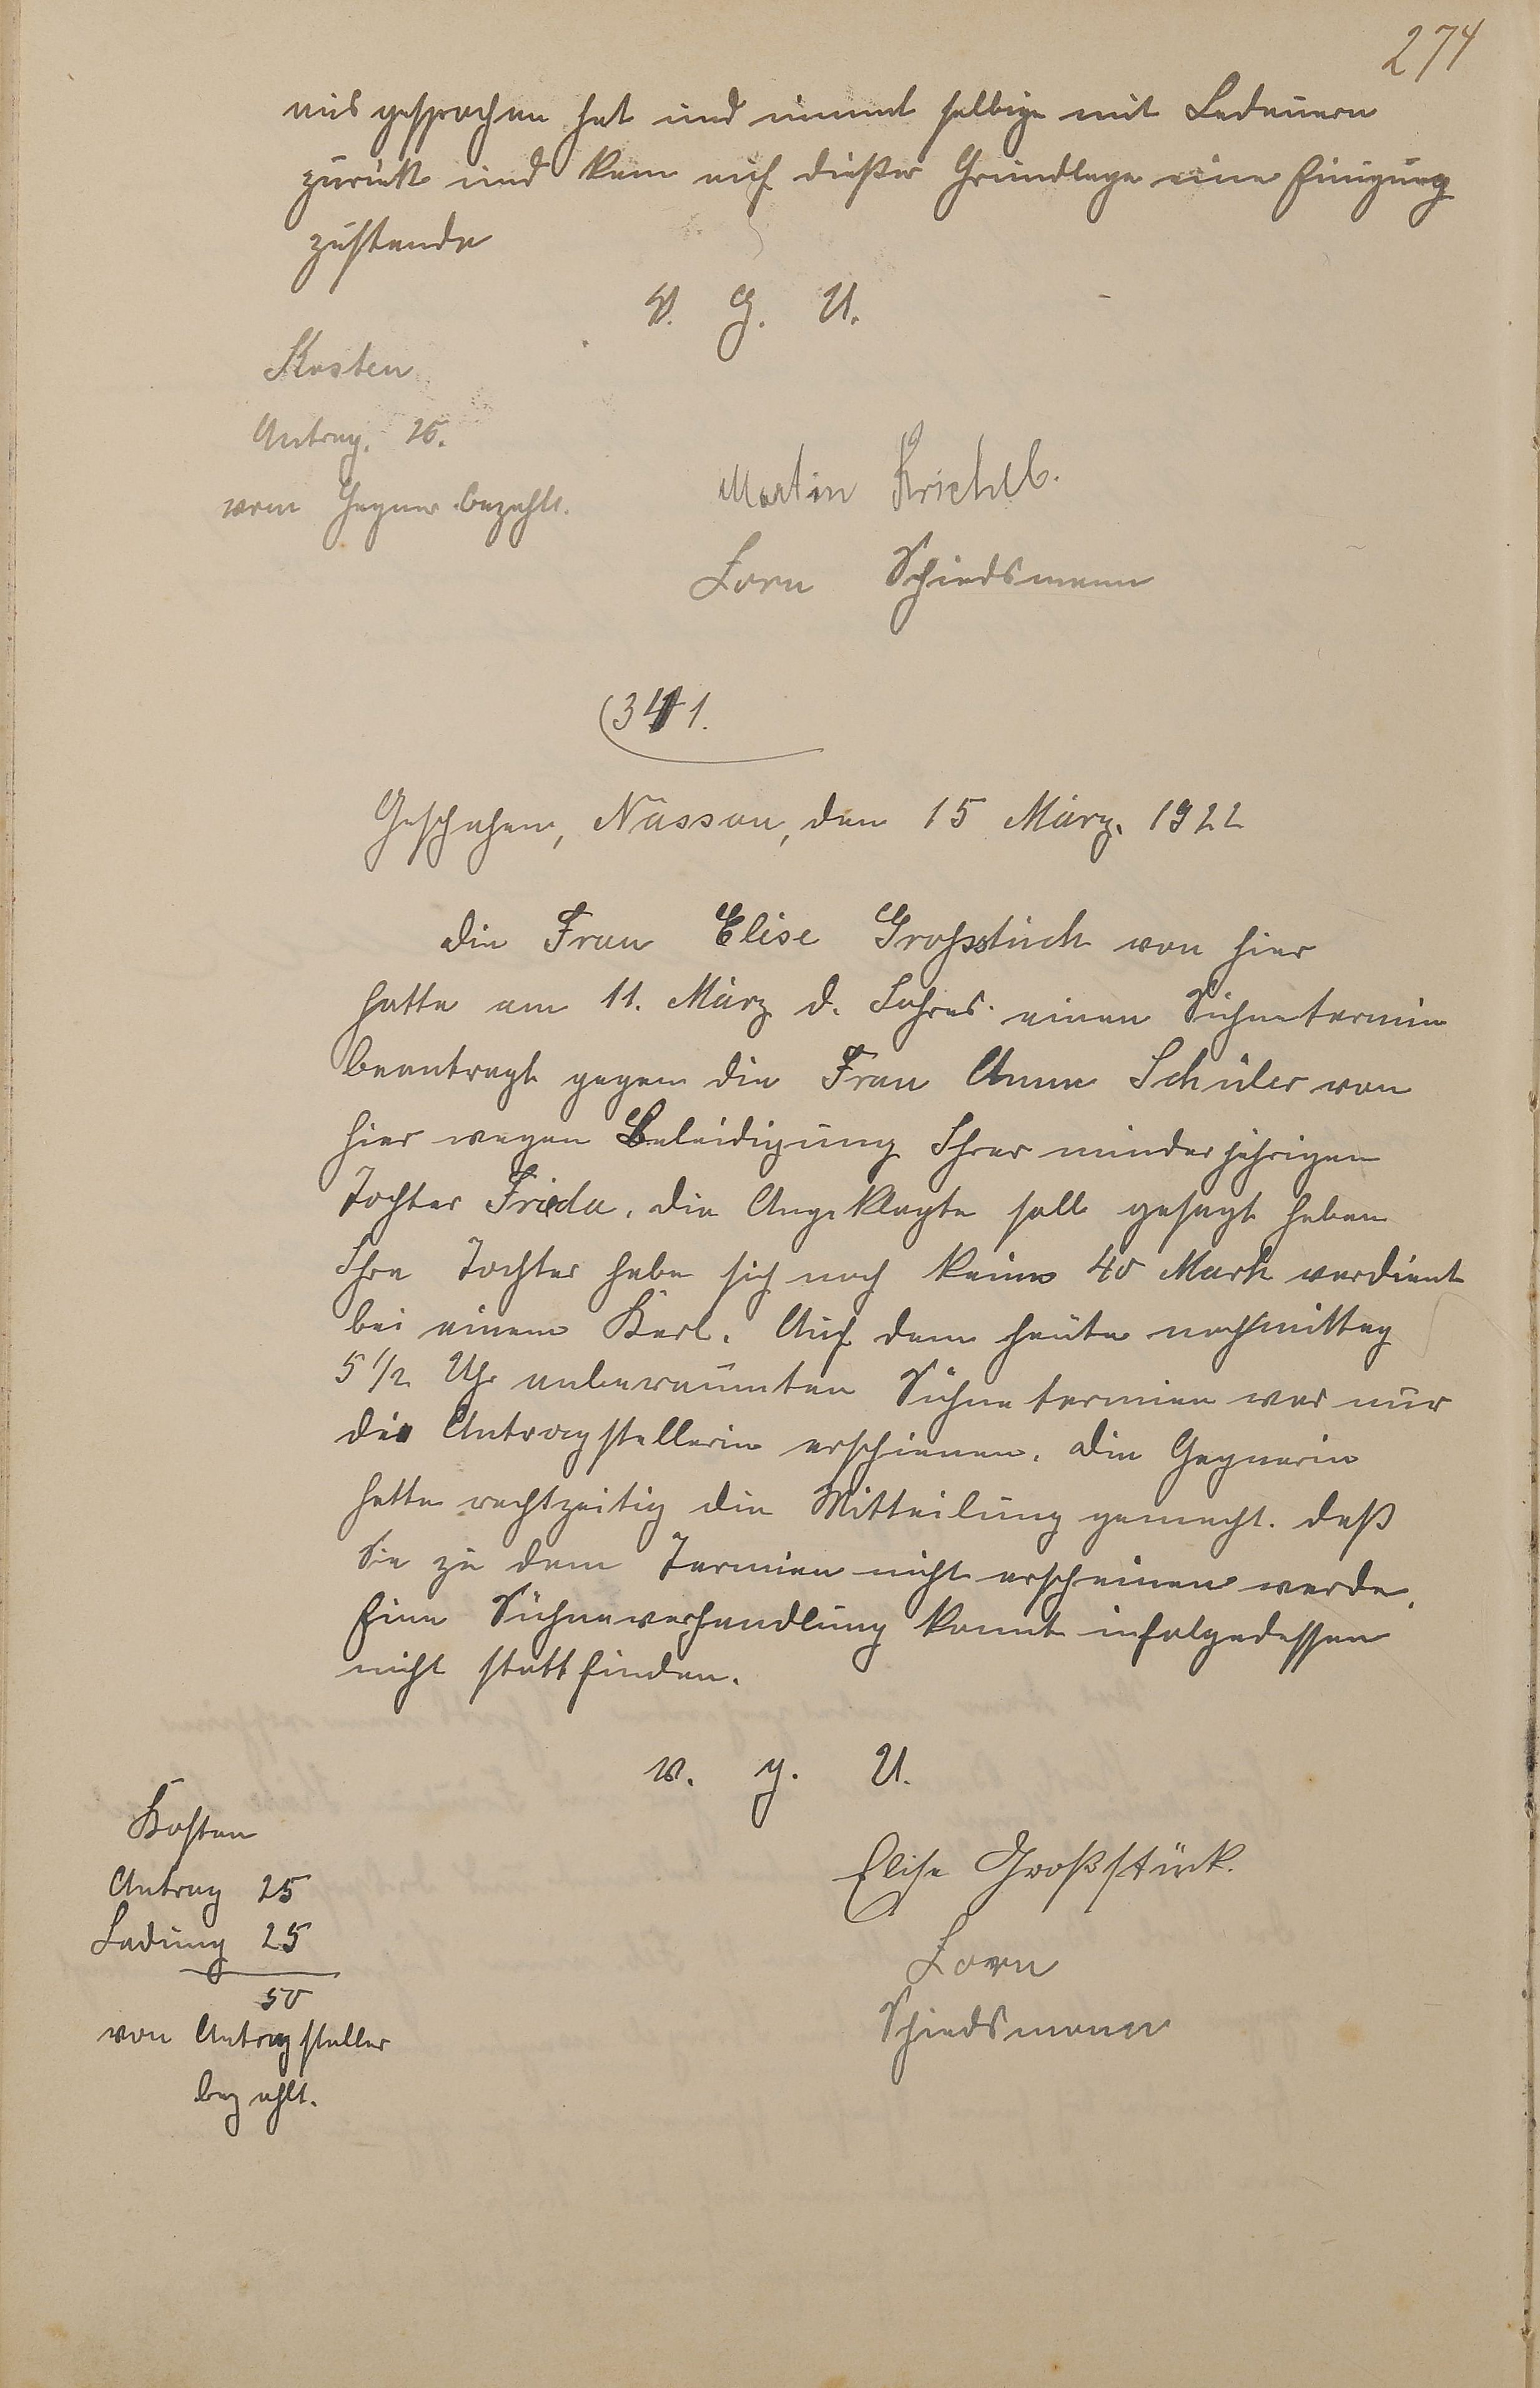 274
ausgesprochen hat und nimmt selbige mit Bedauern
zurück und kam auf dießer Grundlage eine Einigung
zustande
V. G. U.
Kosten
Antrag. 25.
vom Gegner bezahlt.
Martin
Lorn Schiedsmann
341.
Geschehen, Nassau, den 15 März. 1922
Die Frau Elise Grossstück von hier
hatte am 11. März d. Jahres. einen Sühnetermin
beantragt gegen die Frau Anna Schüler von
hier wegen Beleidigung Ihrer minderjährigen
Tochter Frieda. Die Angeklagte soll gesagt haben
Ihre Tochter habe sich noch keine 40 Mark verdient
bei einem Kerl. Auf dem heute nachmittag
5 1/2 Uhr anberaumten Sühnetermien war nur
die Antragstellerin erschienen. Die Gegnerin
hatte rechtzeitig die Mitteilung gemacht. daß
Sie zu dem Termien nicht erscheinen werde.
Eine Sühneverhandlung konnt infolgedessen
nicht stattfinden.
v. g. U.
Kosten
Antrag 25
Ladung 25
50
von Antragsteller
bezahlt.
Elise Großstück.
Lorn
Schiedsmann